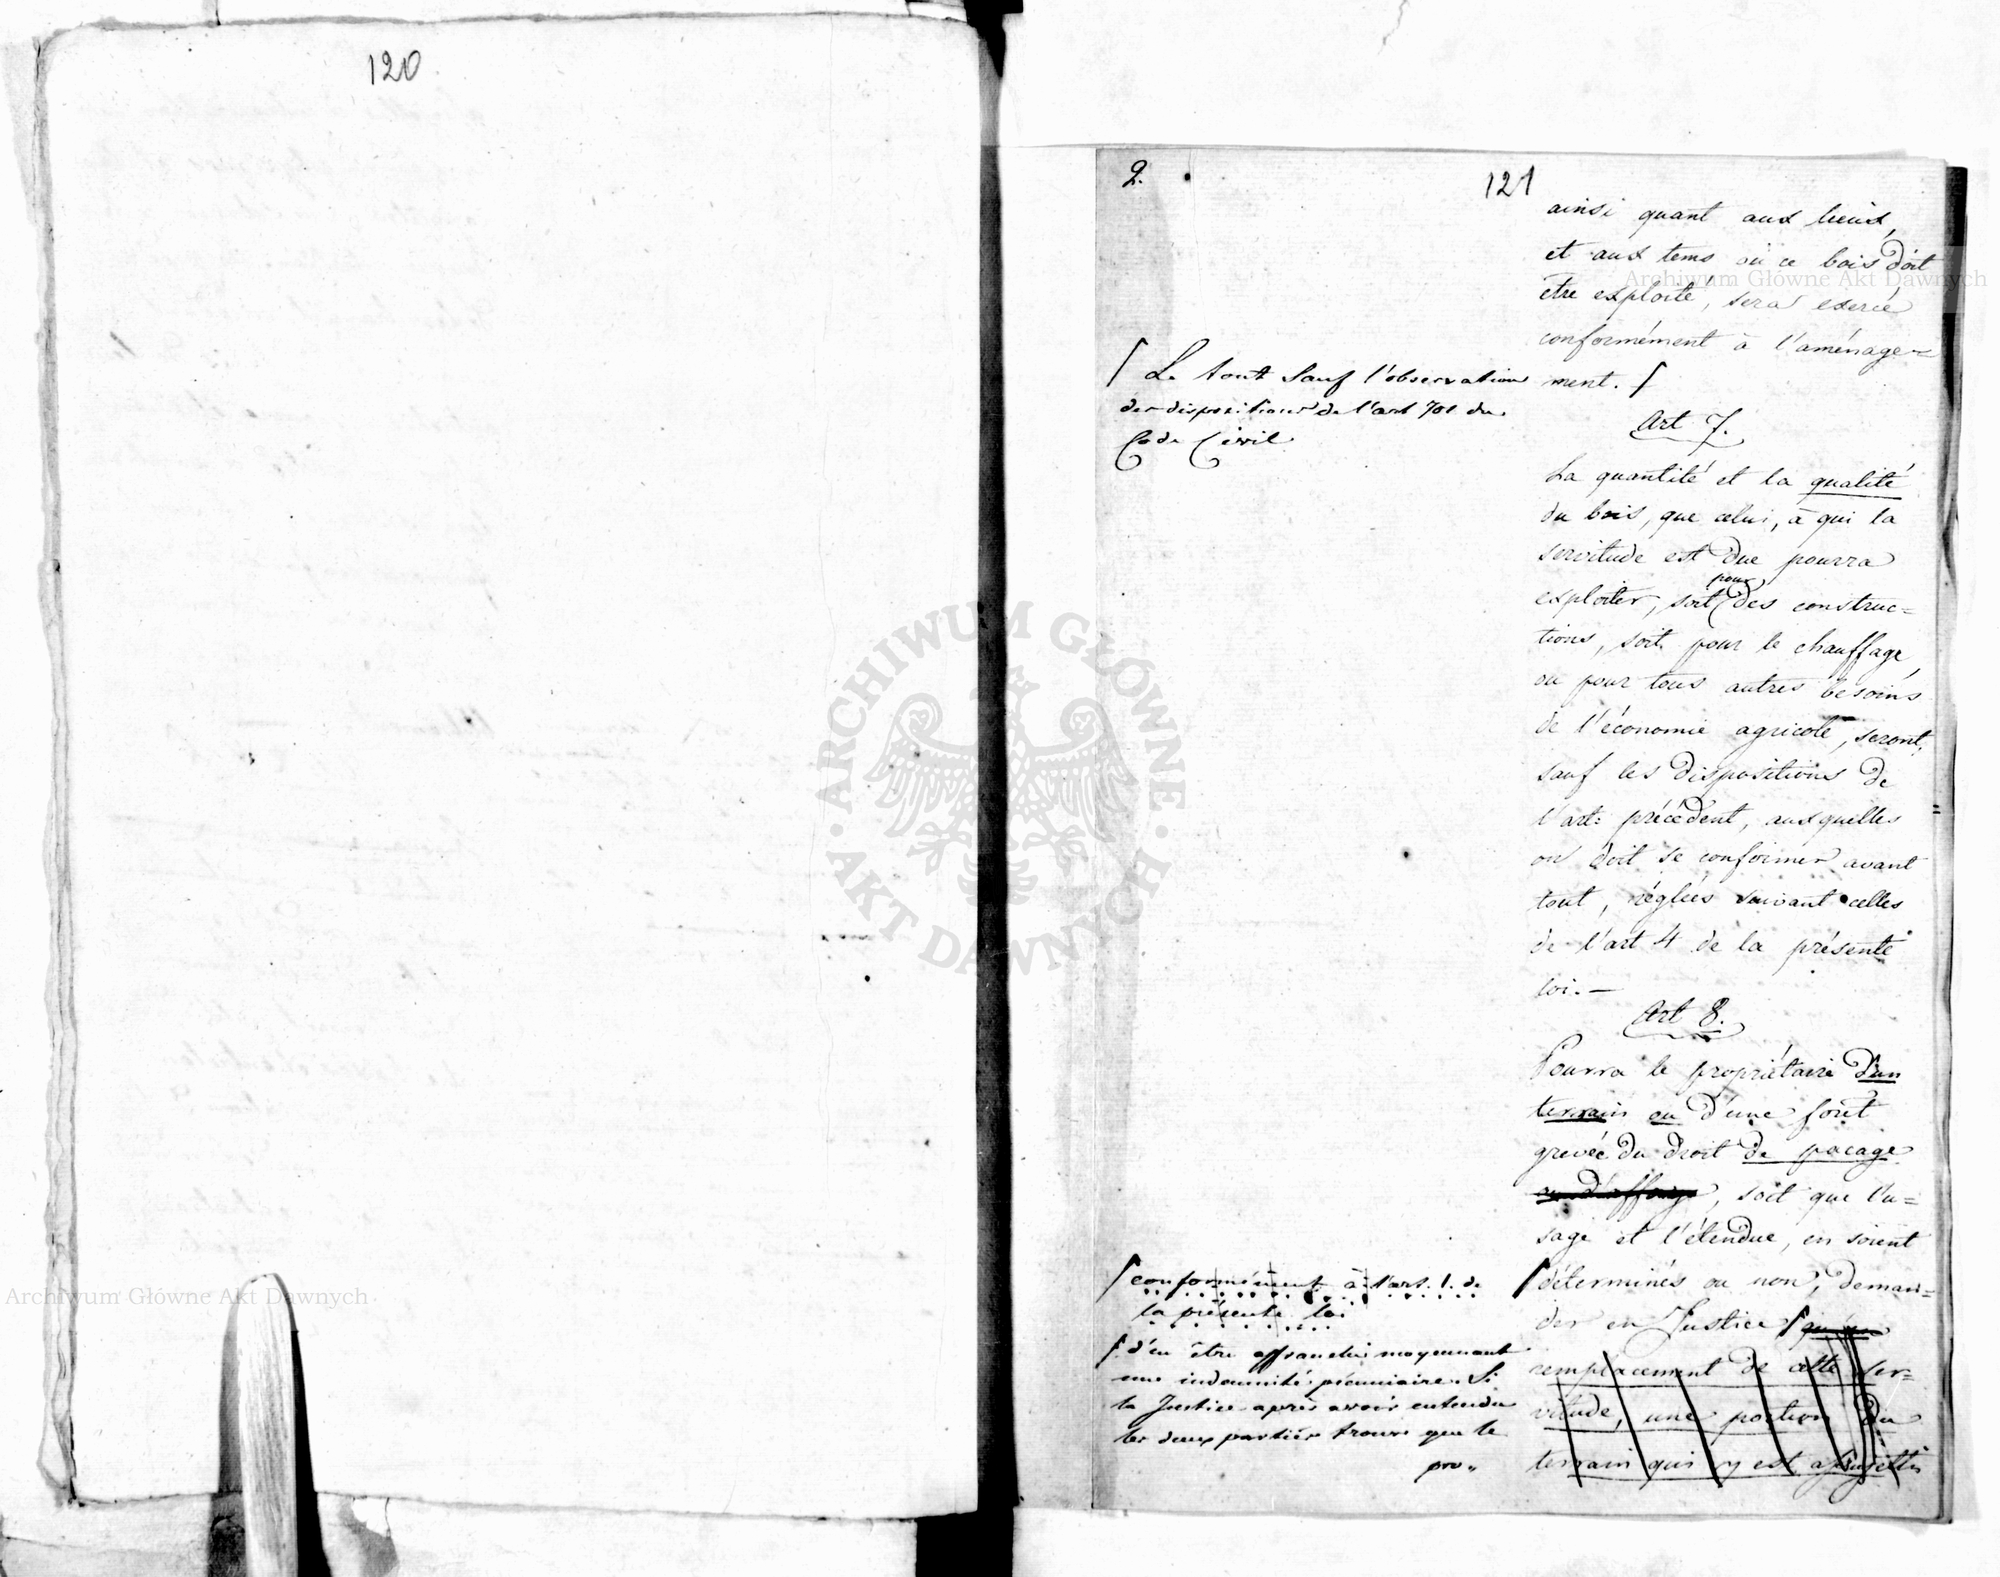 120
2.
121
ainsi quant aux lieux,
et aux tems où ce bois doit
être exploité, sera exercé
conformément à l'aménage=
ment. ⌠
Art 7.
La quantité et la qualité
du bois, que celui, à qui la
servitude est due pourra
pour
exploiter, soit des construc=
tions, soit pour le chauffage,
ou pour tous autres besoins
de l'économie agricole, seront,
sauf les dispositions de
l'art: précédent, auxquelles
on doit se conformer avant
tout, réglées suivant celles
de l'art 4 de la présente
loi. —
Art 8.
Pourra le propriétaire d'un
terrain ou d'une forêt
grevée du droit de pacage
ou d'affouage, soit que l'u=
sage et l'étendue, en soient
⌠ déterminés ou non, deman=
der en Justice ⌠ qu'en
remplacement de cette ser=
vitude, une portion du
terrain qui y est assujetti
⌠ Le tout sauf l'observation
des dispositions de l'art 701 du
Code Civil
⌠ conformément à l'art. 1. de
la présente loi
⌠ d'en être affranchi moyennant
une indemnité pécuniaire. Si
la Justice après avoir entendu
les deux parties trouve que le
pro„
Archiwum Główne Akt Dawnych
Archiwum Główne Akt Dawnych
ARCHIWUM GŁÓWNE · AKT DAWNYCH ·